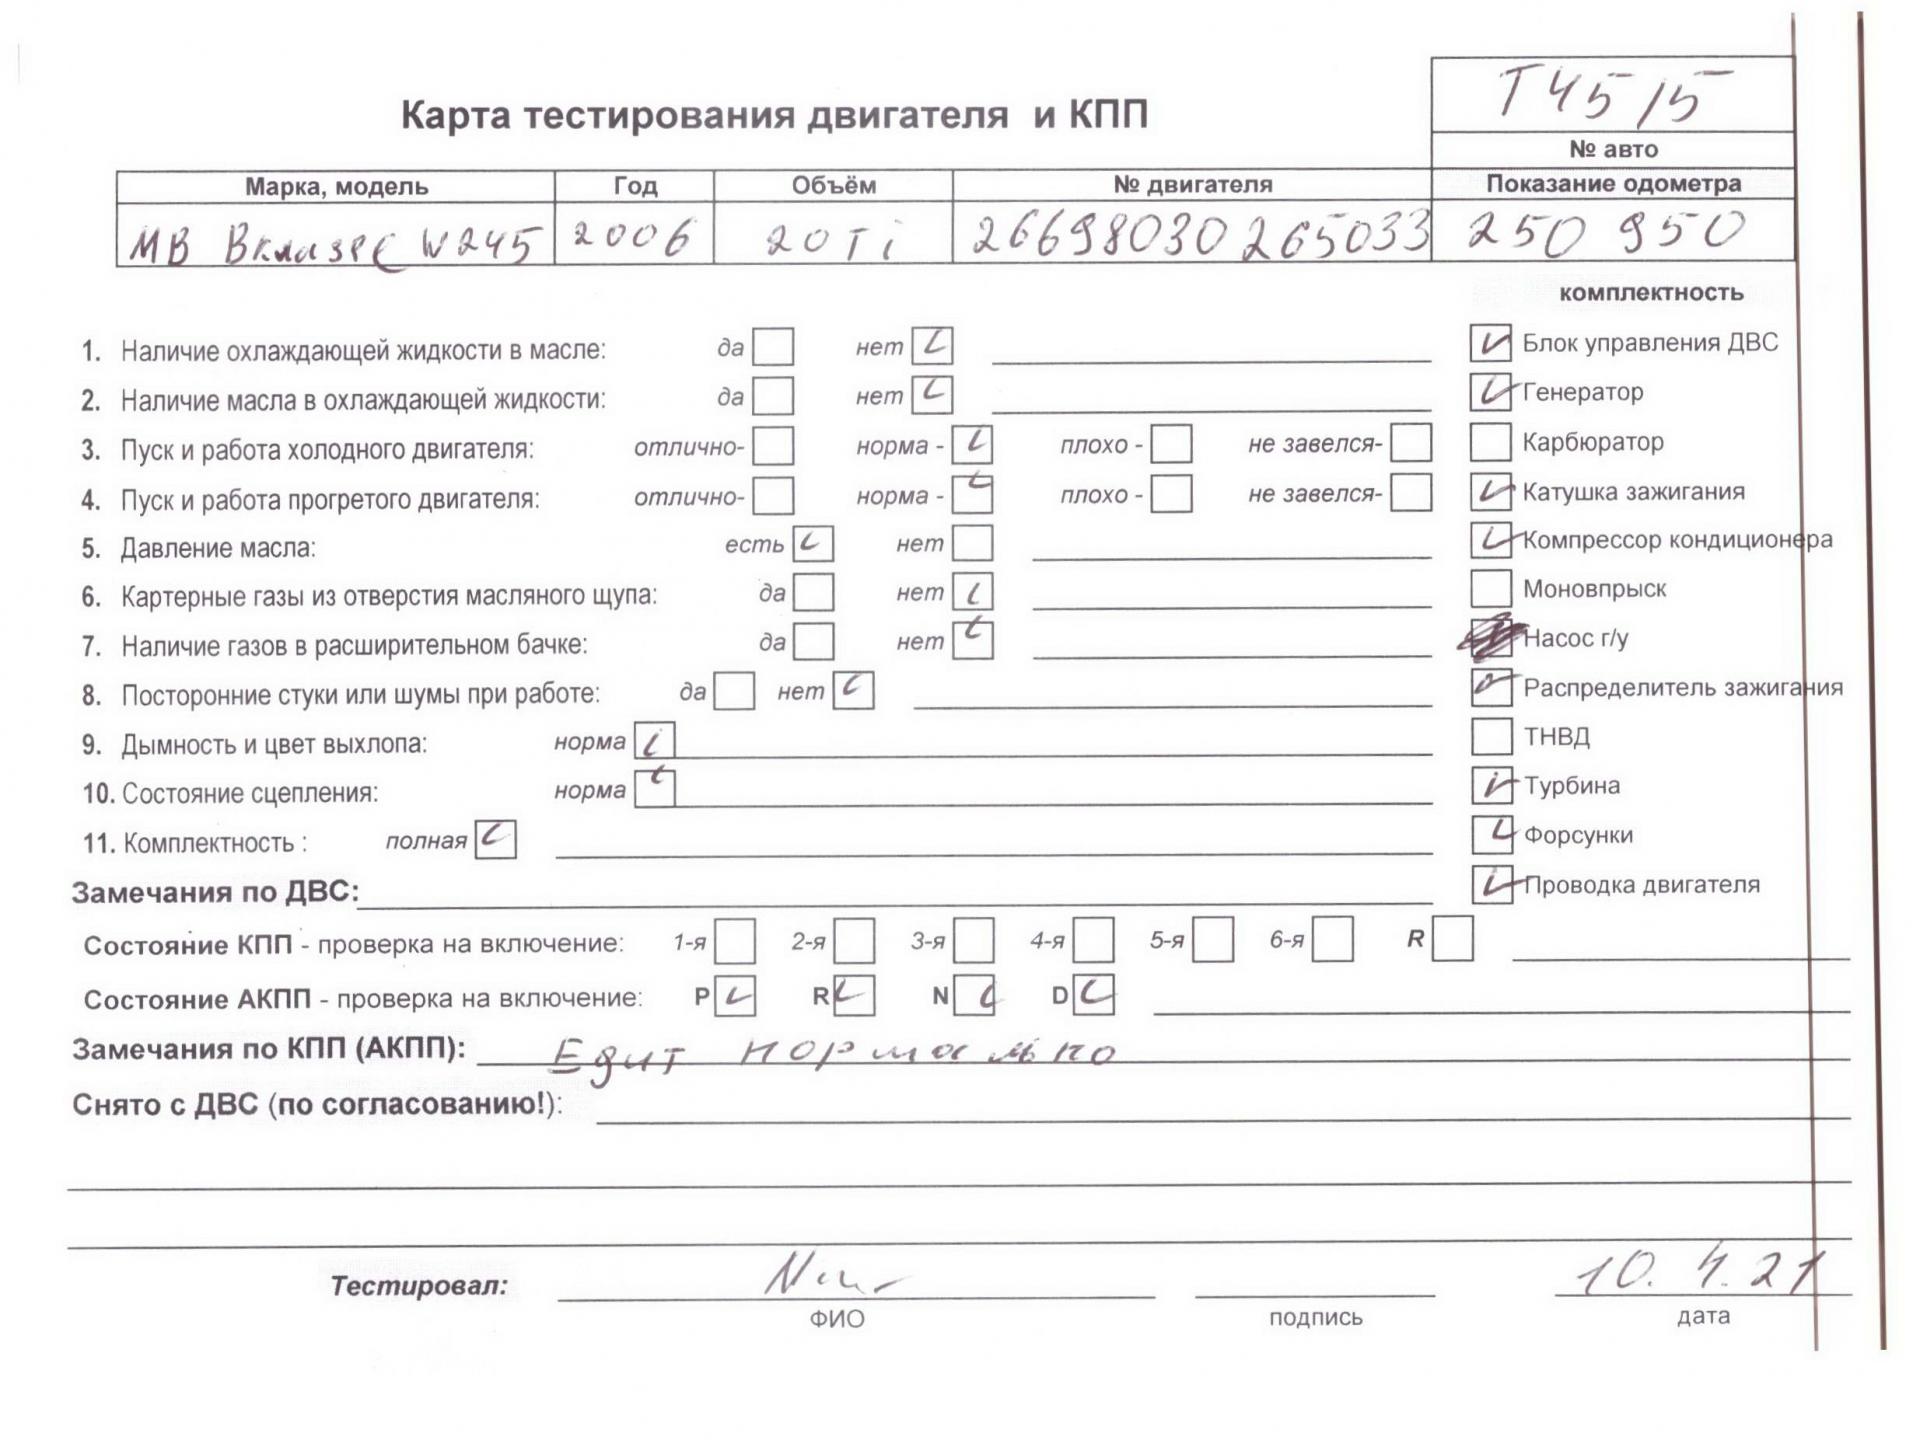 Т45/5
Карта тестирования двигателя и КПП
№ авто
Марка, модель Год Объём № двигателя Показание одометра
МВ Вклазе W245 2006 20Ti 26698030265033 250 950
комплектность
1. Наличие охлаждающей жидкости в масле: да нет
Блок управления ДВС
2. Наличие масла в охлаждающей жидкости: да нет
Генератор
3. Пуск и работа холодного двигателя: отлично- норма - плохо - не завелся-
Карбюратор
4. Пуск и работа прогретого двигателя: отлично- норма - плохо - не завелся-
Катушка зажигания
5. Давление масла: есть нет
Компрессор кондиционера
6. Картерные газы из отверстия масляного щупа: да нет
Моновпрыск
7. Наличие газов в расширительном бачке: да нет
Насос г/у
8. Посторонние стуки или шумы при работе: да нет
Распределитель зажигания
9. Дымность и цвет выхлопа: норма
ТНВД
10. Состояние сцепления: норма
Турбина
11. Комплектность : полная
Форсунки
Замечания по ДВС:
Проводка двигателя
Состояние КПП - проверка на включение: 1-я 2-я 3-я 4-я 5-я 6-я R
Состояние АКПП - проверка на включение: P R N D
Замечания по КПП (АКПП): Едит нормально
Снято с ДВС (по согласованию!):
Тестировал: 10.4.21
ФИО подпись дата